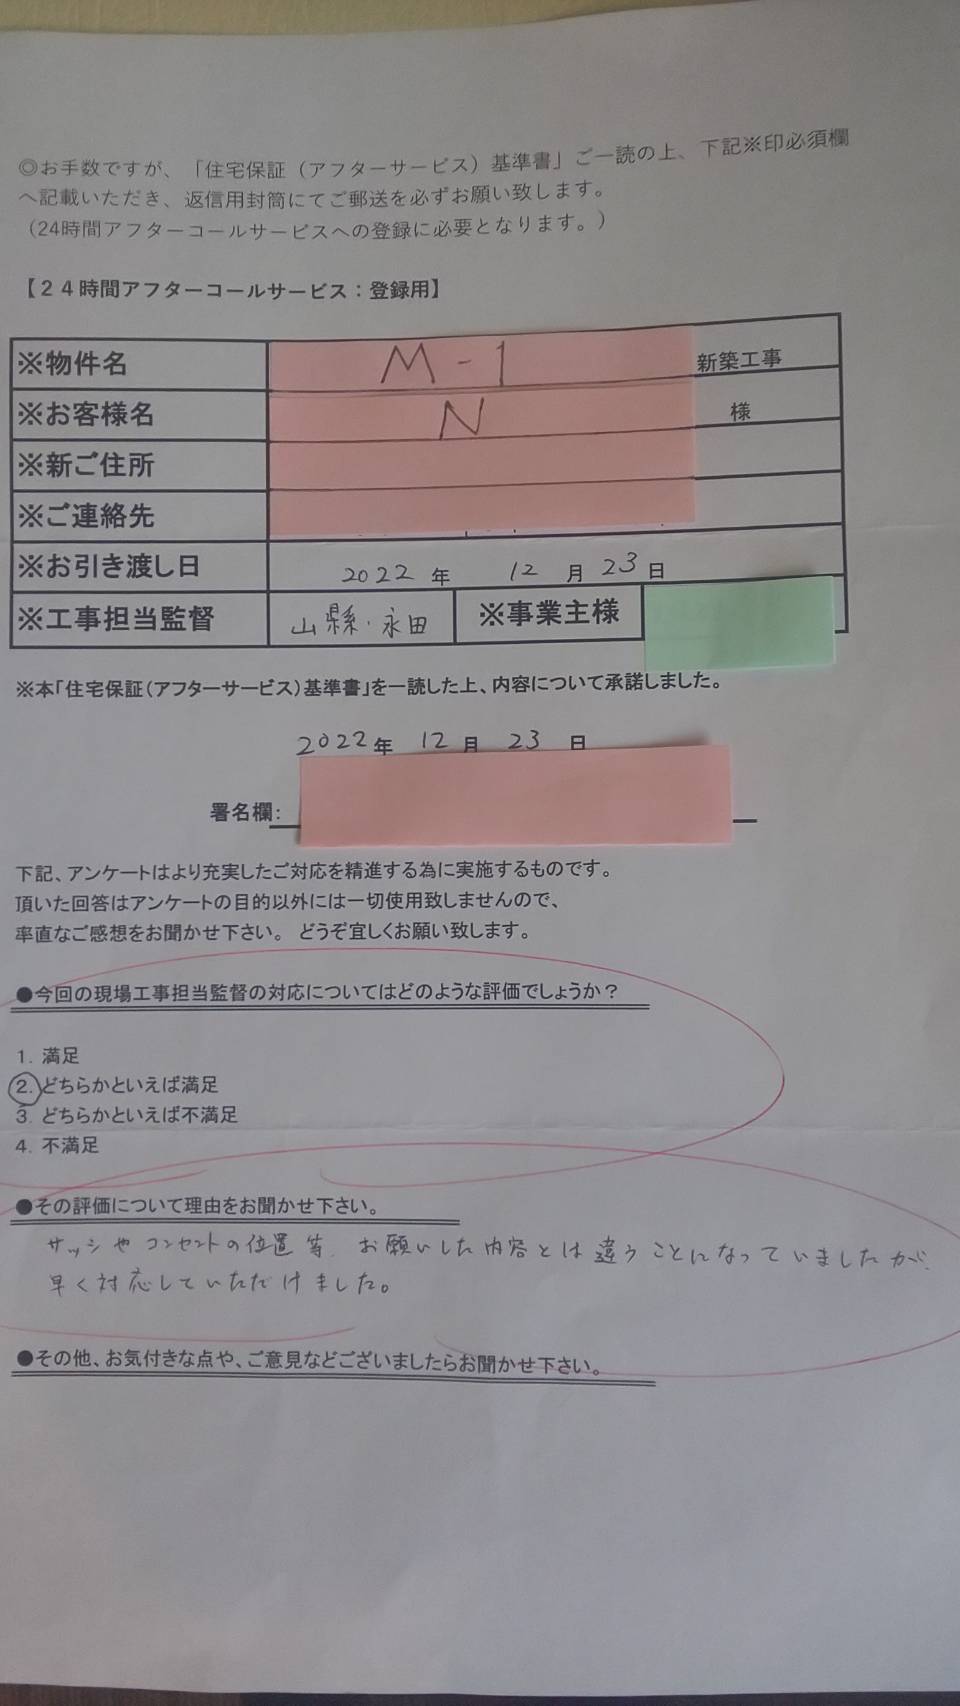 ◎お手数ですが、「住宅保証（アフターサービス）基準書」ご一読の上、下記※印必須欄
へ記載いただき、返信用封筒にてご郵送を必ずお願い致します。
（24時間アフターコールサービスへの登録に必要となります。）
【２４時間アフターコールサービス：登録用】
※物件名 M-1 新築工事
※お客様名 N 様
※新ご住所
※ご連絡先
※お引き渡し日 2022 年 12 月 23 日
※工事担当監督 山縣・永田 ※事業主様
※本「住宅保証（アフターサービス）基準書」を一読した上、内容について承諾しました。
2022年 12 月 23 日
署名欄：
下記、アンケートはより充実したご対応を精進する為に実施するものです。
頂いた回答はアンケートの目的以外には一切使用致しませんので、
率直なご感想をお聞かせ下さい。 どうぞ宜しくお願い致します。
●今回の現場工事担当監督の対応についてはどのような評価でしょうか？
1. 満足
2. どちらかといえば満足
3. どちらかといえば不満足
4. 不満足
●その評価について理由をお聞かせ下さい。
サッシやコンセントの位置等、お願いした内容とは違うことになっていましたが、
早く対応していただけました。
●その他、お気付きな点や、ご意見などございましたらお聞かせ下さい。